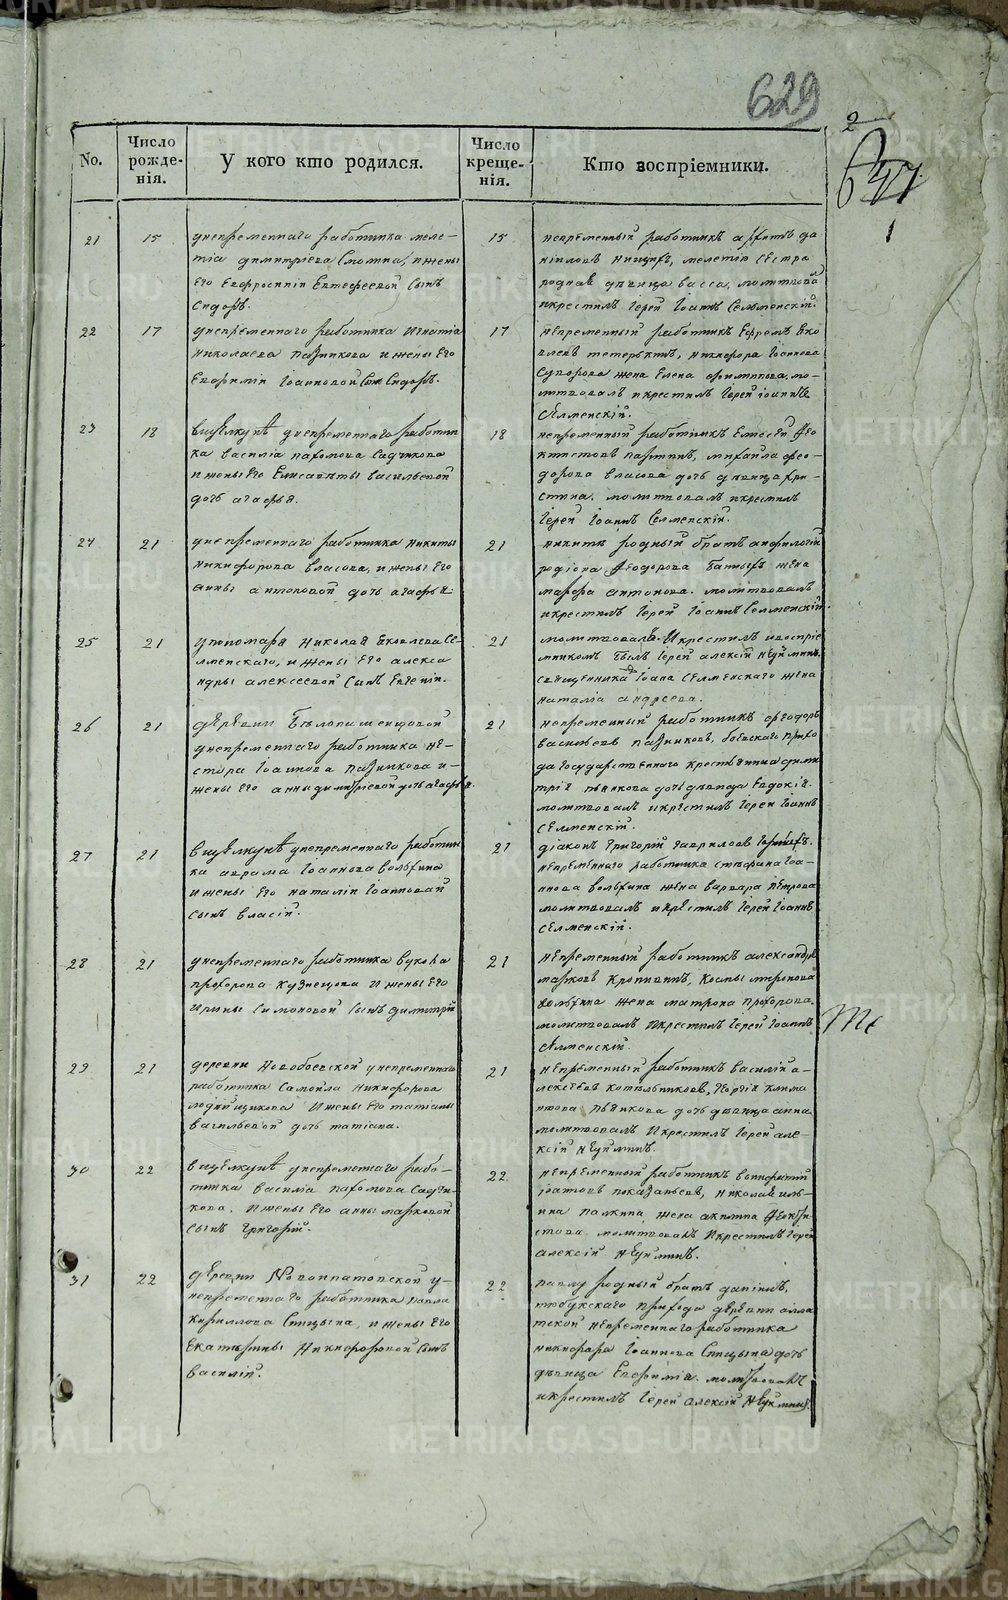 629
2
647
1
No.
Число рожде-нія.
У кого кто родился.
Число креще-нія.
Кто воспріемники.
21
15
унепременнаго работника меле-
тіа димитріева и жены
его Евфросиніи сынъ
Сидоръ.
15
непременный работникъ
мелетію сестра
родная девица васса, молитвовалъ
и крестилъ Іерей Іоаннъ Селменскій.
22
17
унепременнаго работника Игнатіа
николаева пазникова и жены его
Евфиміи Іоанновой сынъ Сидоръ.
17
непременный работникъ Ефремъ яко
влевъ тетеркинъ, никифора Іоаннова
жена Елена филипова, мо-
литвовалъ и крестилъ Іерей Іоаннъ
Селменскій.
23
18
вщелкунѣ унепременнаго работни
ка василіа пахомова Садчикова
и жены его Елисаветы васильевой
дочь агафья.
18
непременный работникъ Елисей Фео
ктистовъ михайла фео-
дорова власова дочь девица хри-
стина. молитвовалъ и крестилъ
Іерей Іоаннъ Селменскій.
24
21
унепременнаго работника никиты
никифорова власова, и жены его
анны антоновой дочь агафья.
21
никитѣ родный братъ
родіона Феодорова жена
марфа антонова. молитвовалъ
и крестилъ Іерей Іоаннъ Селменскій.
25
21
упономаря николая Яковлева Се-
лменскаго, и жены его алекса
ндры алексеевой сынъ Евгеній.
21
молитвовалъ. и крестилъ и воспріе
мникомъ былъ Іерей алексій неуйминъ.
священника Іоанна Селменскаго жена
наталіа андреева.
26
21
деревни Белопашенцовой
унепременнаго работника не-
стора Іоаннова пазникова и
жены его анны димитріевой дочь агафья.
21
непременный работникъ феодоръ
васильевъ пазниковъ, боевскаго прихо
да государственнаго крестьянина дими
трія пьянкова дочь девица Евдокія.
молитвовалъ и крестилъ Іерей Іоаннъ
Селменскій.
27
21
вщелкунѣ унепременнаго работни
ка аврама Іоаннова вольхина
и жены его наталіи Іоанновой
сынъ власій.
21
діаконъ Григорій гавриловъ
непременнаго работника стефана Іоа-
ннова вольхина жена варвара петрова
молитвовалъ и крестилъ Іерей Іоаннъ
Селменскій.
28
21
унепременнаго работника вукола
прохорова кузнецова и жены его
ирины Симоновой сынъ димитрій
21
непременный работникъ александръ
марковъ кропивинъ, козмы миронова
вольхина жена матрона прохорова.
молитвовалъ и крестилъ Іерей Іоаннъ
Селменскій.
29
21
деревни Новобоевской унепременнаго
работника Самойла никифорова
и жены его татіаны
васильевой дочь татіана.
21
непременный работникъ василій а-
лексеевъ котельниковъ, георгія клима
нтова пьянкова дочь девица анна
молитвовалъ и крестилъ Іерей але-
ксій неуйминъ.
30
22
вщелкунѣ унепременнаго рабо-
тника василіа пахомова Садчи-
кова, и жены его анны марковой
сынъ григорій.
22
непременный работникъ
николая иль-
ина палкина жена акилина Феокти-
стова. молитвовалъ и крестилъ Іерей
алексій неуйминъ.
31
22
деревни Новоипатовской у-
непременнаго работника павла
кириллова Спицына, и жены его
Екатерины Никифоровой сынъ
василій.
22
павлу родный братъ даніилъ,
тюбукскаго прихода деревни алла
кской непременнаго работника
никифора Іоаннова Спицына дочь
девица Евфиміа. молитвовалъ
и крестилъ Іерей алексій неуйминъ.
METRIKI.GASO-URAL.RU